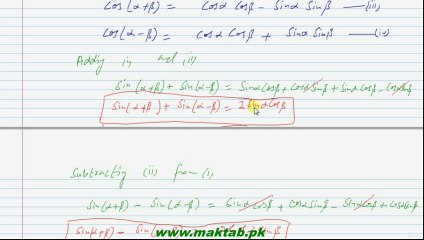 Cos(α+β) = Cosα Cosβ - Sinα Sinβ —(iii)
Cos(α-β) = Cosα Cosβ + Sinα Sinβ —(iv)
Adding (i) and (ii)
Sin(α+β) + Sin(α-β) = Sinα Cosβ + Cosα Sinβ + Sinα Cosβ - Cosα Sinβ
Sin(α+β) + Sin(α-β) = 2 Sinα Cosβ
Subtracting (ii) from (i),
Sin(α+β) - Sin(α-β) = Sinα Cosβ + Cosα Sinβ - Sinα Cosβ + Cosα Sinβ
Sin(α+β) - Sin(α-β)
www.maktab.pk